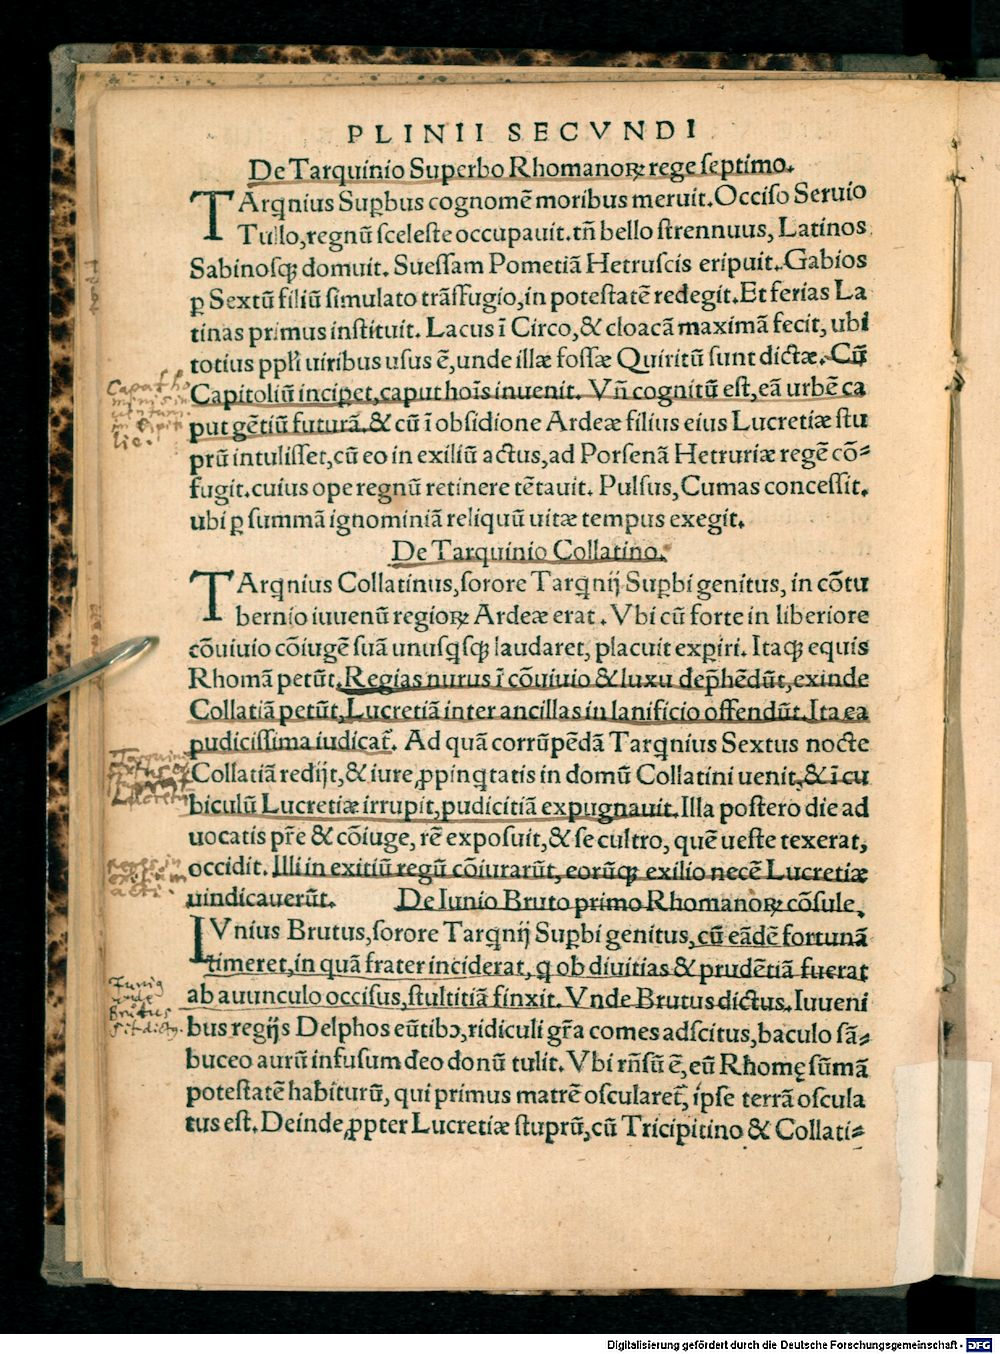 PLINII SECVNDI
De Tarquinio Superbo Rhomanoꝝ rege ſeptimo.
TArꝗnius Suꝑbus cognomē moribus meruit. Occiſo Seruio
Tullo, regnū ſceleſte occupauit. tñ bello ſtrennuus, Latinos
Sabinoſqꝫ domuit. Sueſſam Pometiā Hetruſcis eripuit. Gabios
ꝑ Sextū filiū ſimulato trāſſugio, in poteſtatē redegit. Et ferias La
tinas primus inſtituit. Lacus ī Circo, & cloacā maximā fecit, ubi
totius ppľi uiribus uſus ē, unde illæ foſſæ Quiritū ſunt dictæ. Cū
Capitoliū inciꝑet, caput hoīs inuenit. Vñ cognitū eſt, eā urbē ca
put gētiū futurā. & cū ī obſidione Ardeæ filius eius Lucretiæ ſtu
prū intuliſſet, cū eo in exiliū actus, ad Porſenā Hetruriæ regē cō⸗
fugit. cuius ope regnū retinere tētauit. Pulſus, Cumas conceſſit.
ubi ꝑ ſummā ignominiā reliquū uitæ tempus exegit.
De Tarquinio Collatino.
TArꝗnius Collatinus, ſorore Tarꝗnij Suꝑbi genitus, in cōtu
bernio iuuenū regioꝝ Ardeæ erat. Vbi cū forte in liberiore
cōuiuio cōiugē ſuā unuſꝗſqꝫ laudaret, placuit exꝑiri. Itaqꝫ equis
Rhomā petūt. Regias nurus ī cōuiuio & luxu dep̄hēdūt, exinde
Collatiā petūt, Lucretiā inter ancillas in lanificio offendūt. Ita ea
pudiciſſima iudicat̄. Ad quā corrūpēdā Tarꝗnius Sextus nocte
Collatiā redijt, & iure ꝓpinꝗtatis in domū Collatini uenit, & ī cu
biculū Lucretiæ irrupit, pudicitiā expugnauit. Illa poſtero die ad
uocatis pr̄e & cōiuge, rē expoſuit, & ſe cultro, quē ueſte texerat,
occidit. Illi in exitiū regū cōiurarūt, eorūqꝫ exilio necē Lucretiæ
uindicauerūt. De Iunio Bruto primo Rhomanoꝝ cōſule.
IVnius Brutus, ſorore Tarꝗnij Suꝑbi genitus, cū eādē fortunā
timeret, in quā frater inciderat, ꝗ ob diuitias & prudētiā fuerat
ab auunculo occiſus, ſtultitiā finxit. Vnde Brutus dictus. Iuueni
bus regijs Delphos eūtibↄ, ridiculi gr̄a comes adſcitus, baculo ſā⸗
buceo aurū infuſum deo donū tulit. Vbi rñſū ē, eū Rhomę ſūmā
poteſtatē habiturū, qui primus matrē oſcularet̄, ipſe terrā oſcula
tus eſt. Deinde ꝓpter Lucretiæ ſtuprū, cū Tricipitino & Collati⸗
Caput ho
minis in
uentum
in Capito
lie.
Tarquini
Sextus
Lucretiā
reges in
exilium
acti.
Iunig
unde
Brutus
sit dictg.
Digitalisierung gefördert durch die Deutsche Forschungsgemeinschaft - DFG